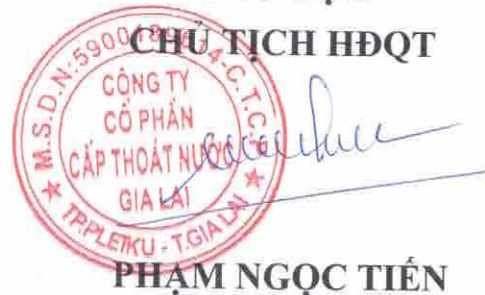 CHỦ TỊCH HĐQT
CÔNG TY
CỔ PHẦN
CẤP THOÁT NƯỚC
GIA LAI
TP.PLEIKU - T.GIA LAI
PHẠM NGỌC TIẾN